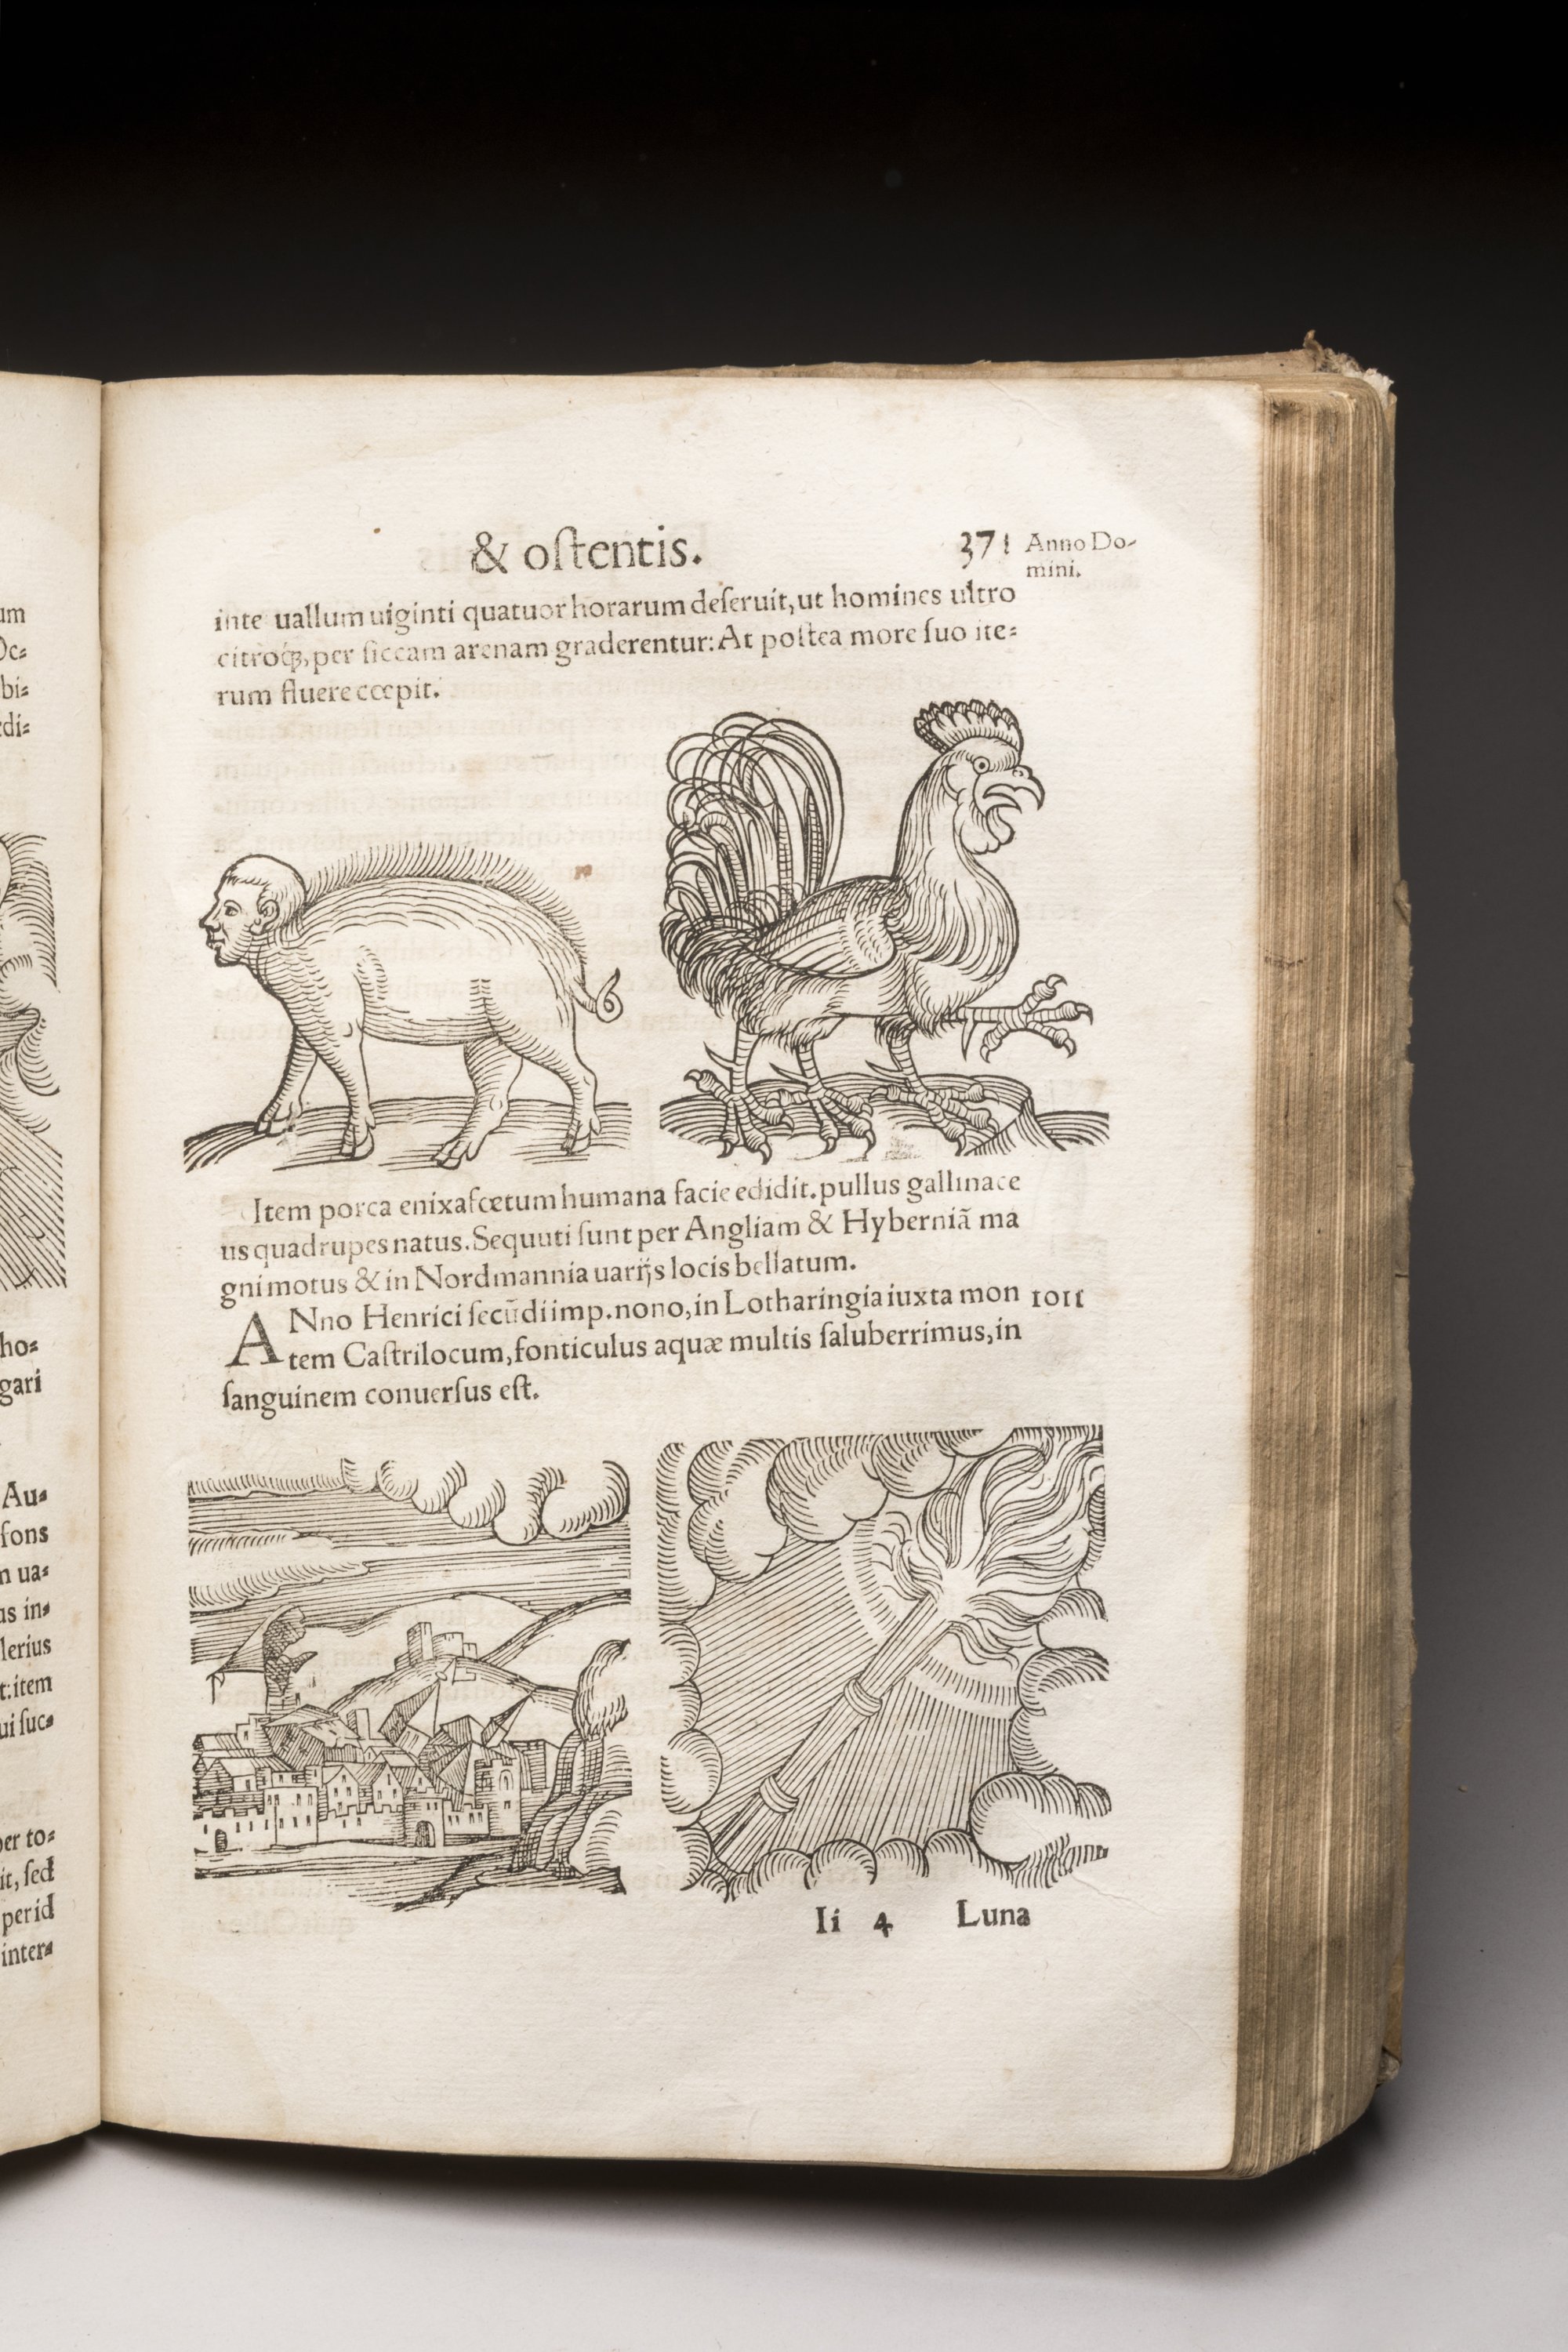 um
Oc⸗
bi⸗
di⸗
ho⸗
gari
Au⸗
fons
m ua⸗
us in⸗
lerius
t: item
ui ſuc⸗
per to⸗
it, ſed
per id
inter⸗
& oſtentis. 371 Anno Do⸗
mini.
inte uallum uiginti quatuor horarum deſeruit, ut homines ultro
citroq́ꝫ, per ſiccam arenam graderentur: At poſtea more ſuo ite⸗
rum fluere cœpit.
Item porca enixa fœtum humana facie edidit. pullus gallinace
us quadrupes natus. Sequuti ſunt per Angliam & Hyberniã ma
gni motus & in Nordmannia uarijs locis bellatum.
ANno Henrici ſecũdi imp. nono, in Lotharingia iuxta mon 1011
tem Caſtrilocum, fonticulus aquæ multis ſaluberrimus, in
ſanguinem conuerſus eſt.
Ii 4 Luna